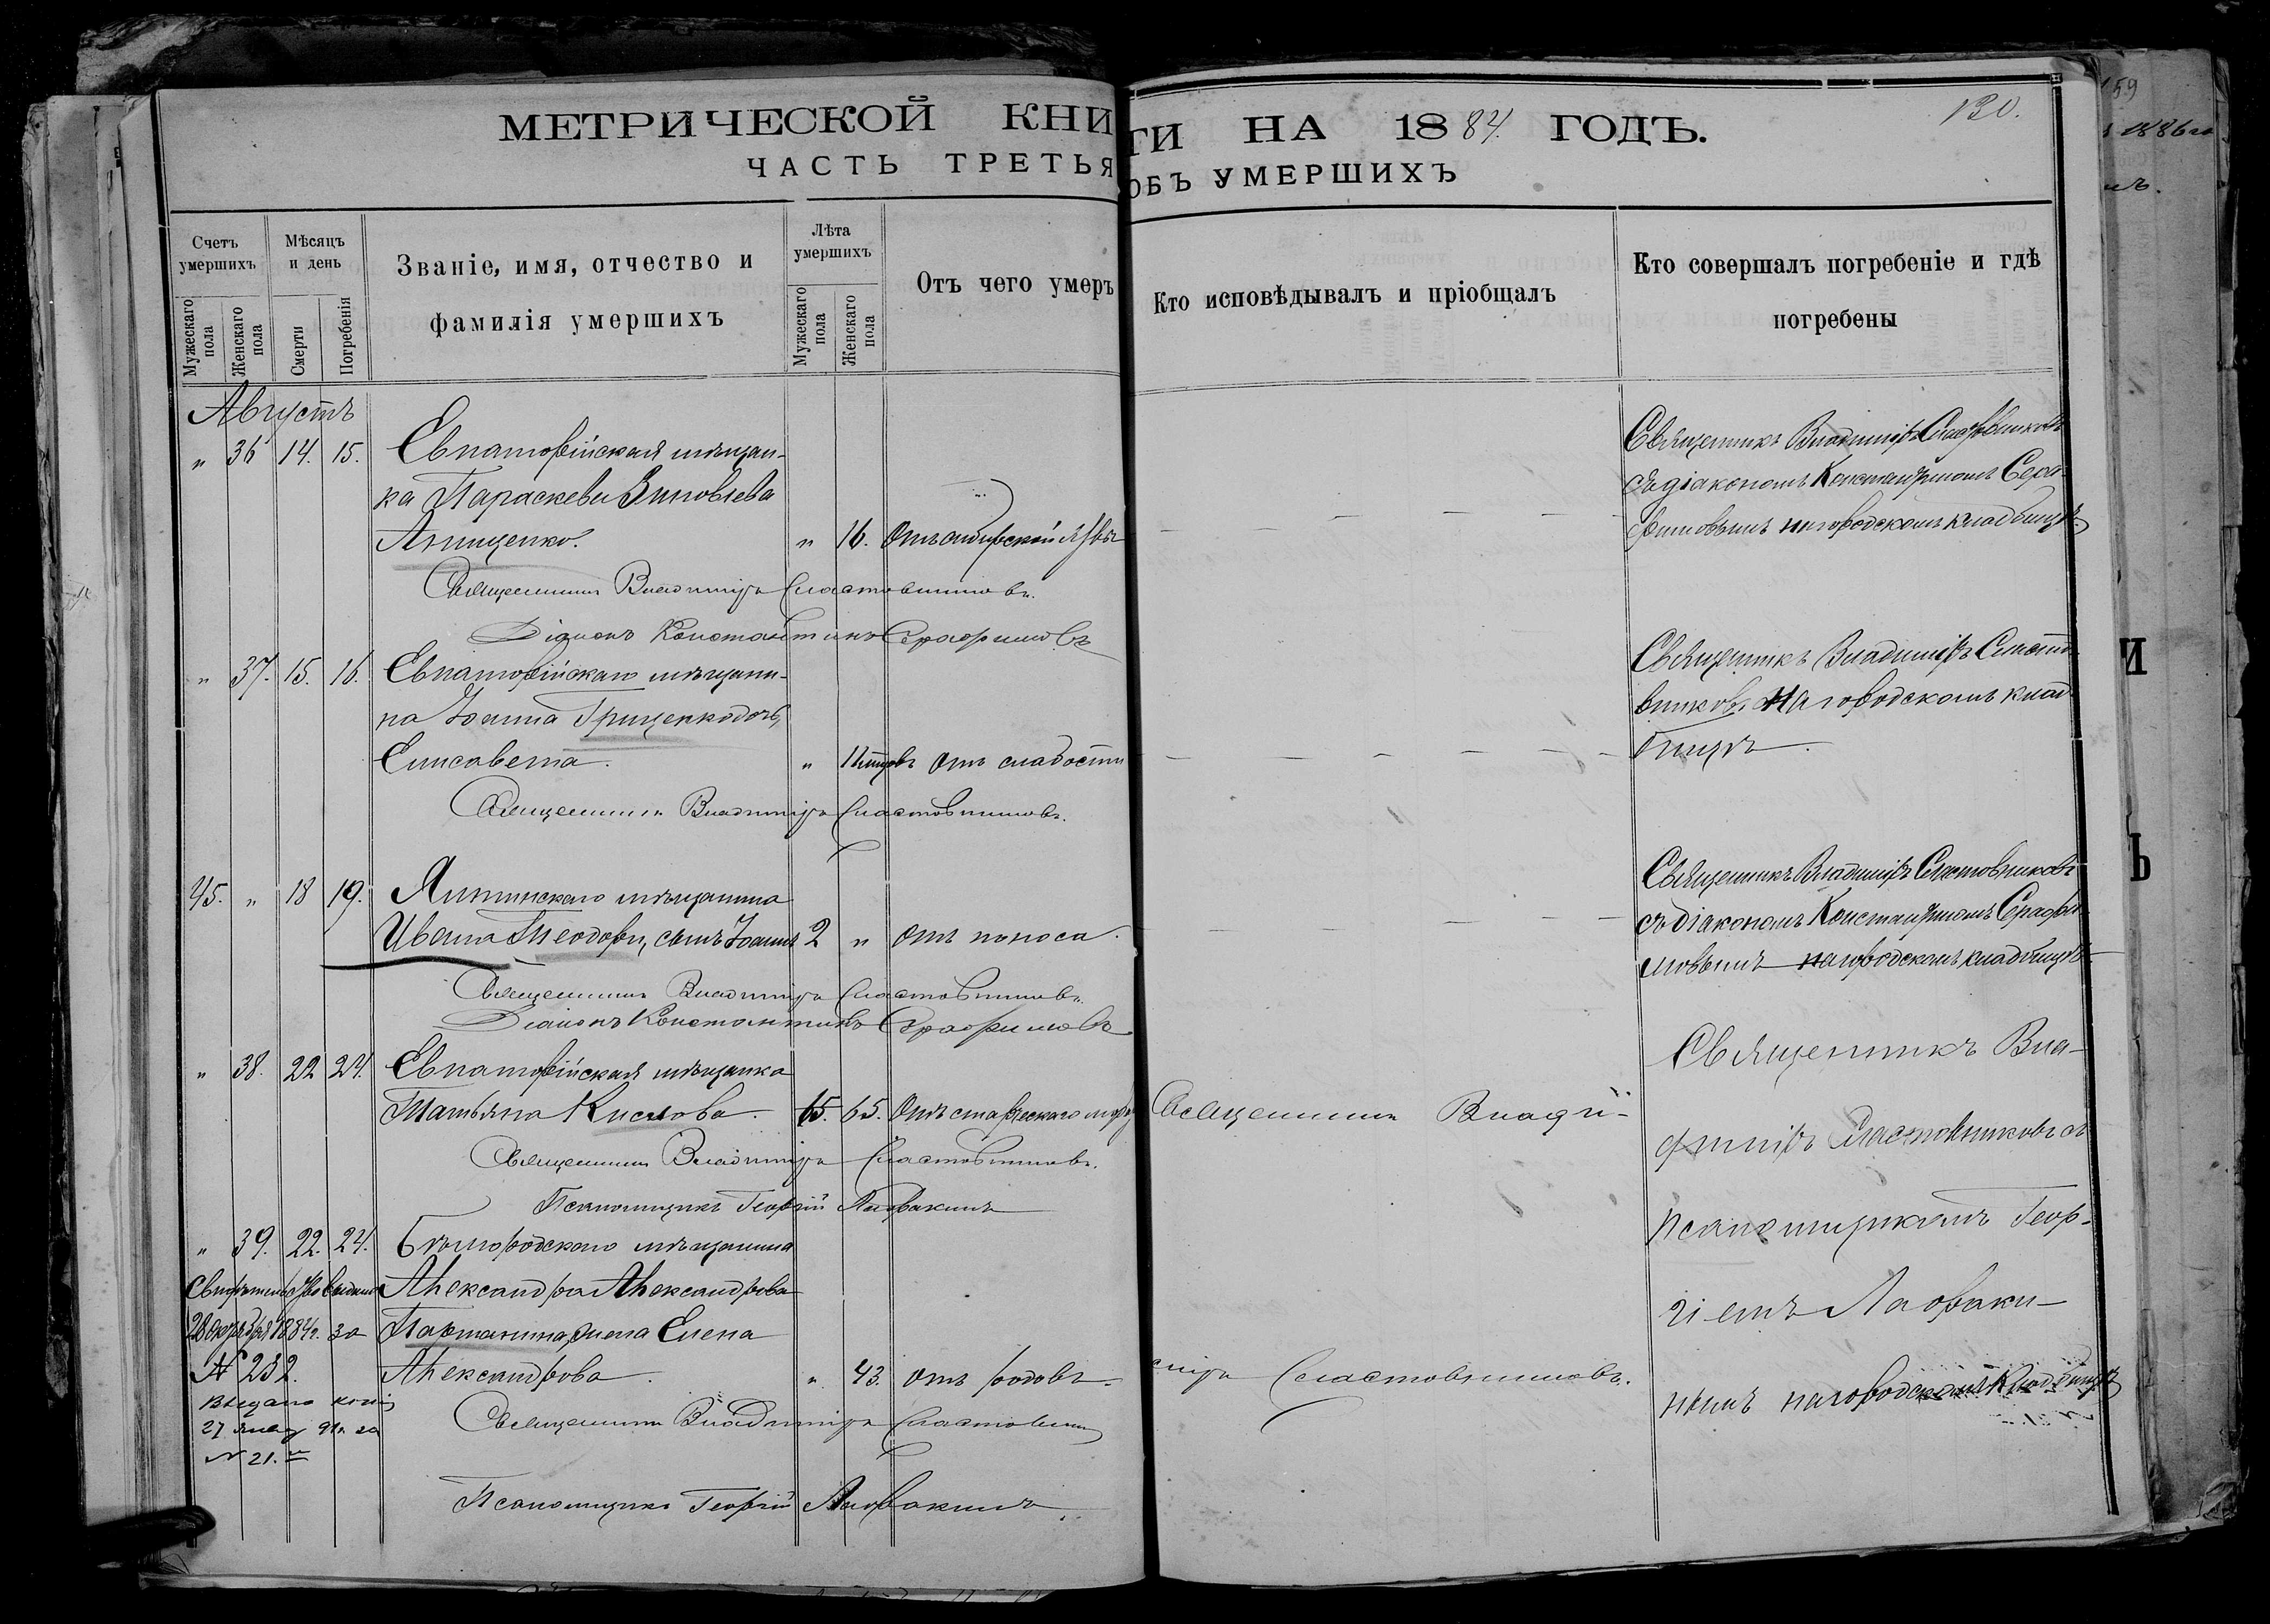 МЕТРИЧЕСКОЙ КНИГИ НА 1884 ГОДЪ.
130.
ЧАСТЬ ТРЕТЬЯ ОБЪ УМЕРШИХЪ
Счетъ умершихъ
Мужескаго пола
Женскаго пола
Мѣсяцъ и день
Смерти
Погребенія
Званіе, имя, отчество и
фамилія умершихъ
Лѣта умершихъ
Мужескаго пола
Женскаго пола
Отъ чего умеръ
Кто исповѣдывалъ и пріобщалъ
Кто совершалъ погребеніе и гдѣ
погребены
Августъ
" 36 14. 15. Евпаторійская мѣщан-
ка Параскева Зиновьева
Анищенко. " 16. Отъ сибирской язвы
Священникъ Владиміръ Сластовниковъ
съ діакономъ Константиномъ Сера-
фимовымъ на городскомъ кладбищѣ
Священникъ Владиміръ Сластовниковъ.
Діаконъ Константинъ Серафимовъ
" 37. 15. 16. Евпаторійскаго мѣщани-
на Іоанна Грищенко дочь,
Елисавета. " 11 мѣсяцовъ отъ слабости
Священникъ Владиміръ Сласто-
вниковъ. На городскомъ клад-
бищѣ.
Священникъ Владиміръ Сластовниковъ.
45. " 18 19. Ялтинскаго мѣщанина
Ивана Теодори, сынъ Іоаннъ 2 " отъ поноса.
Священникъ Владиміръ Сластовниковъ
съ діакономъ Константиномъ Серафи-
мовымъ на городскомъ кладбищѣ
Священникъ Владиміръ Сластовниковъ.
Діаконъ Константинъ Серафимовъ
" 38. 22 24. Евпаторійская мѣщанка
Татьяна Кислова. 65. Отъ старческаго
Священникъ Влади-
Священникъ Владиміръ Сластовниковъ.
Псаломщикъ Георгій
" 39. 22. 24. Бѣлгородскаго мѣщанина
Александра Александрова
жена Елена
Александрова. " 43. отъ родовъ.
міръ Сластовниковъ.
Священникъ Вла-
диміръ Сластовниковъ съ
псаломщикомъ Геор-
гіемъ
нымъ на городскомъ кладбищѣ
Свидѣтельство выдано
28 октября 1884 г. за
№ 232.
Выдана копія
27 91 г. за
№ 21.
Священникъ Владиміръ Сластовниковъ
Псаломщикъ Георгій
59
1886 го
И
Ъ